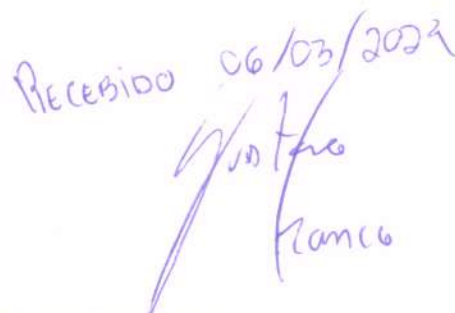 RECEBIDO 06/03/2024
Gustavo
Franco